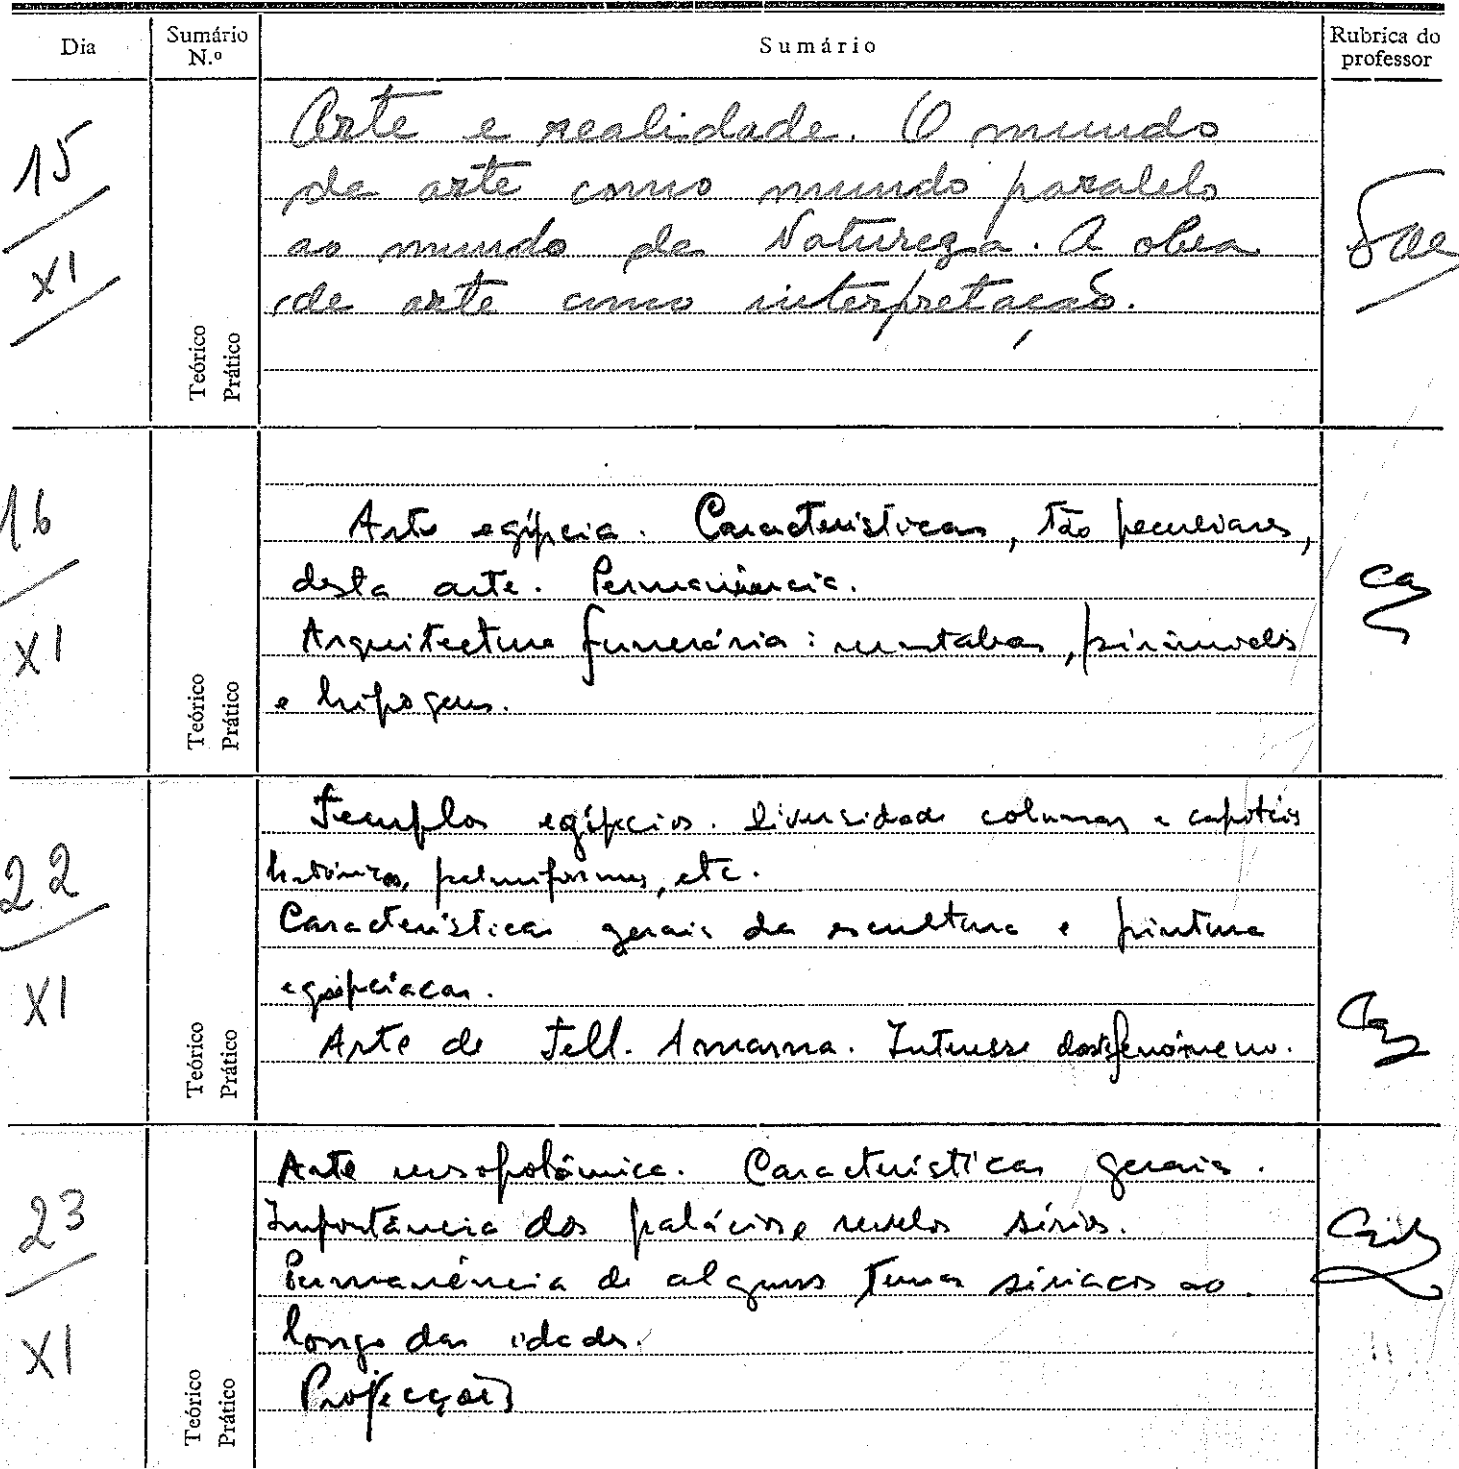 Dia
Sumário
N.º
Sumário
Rubrica do
professor
15
XI
Teórico
Prático
Arte e realidade. O mundo
da arte como mundo paralelo
ao mundo da Natureza. A obra
de arte como interpretação.
16
XI
Teórico
Prático
Arte egípcia. Características, tão peculiares,
desta arte. Permanência.
Arquitectura funerária: mastabas, pirâmides
e hipogeus.
22
XI
Teórico
Prático
Templos egípcios. Diversidade colunas e capitéis
palmiformes, etc.
Características gerais da escultura e pintura
egipcíacas.
Arte de Tell. Amarna. Interesse fenómeno.
23
XI
Teórico
Prático
Arte mesopotâmica. Características gerais.
Importância dos palácios sírios.
Permanência de alguns temas siríacos ao
longo das idades.
Projecções